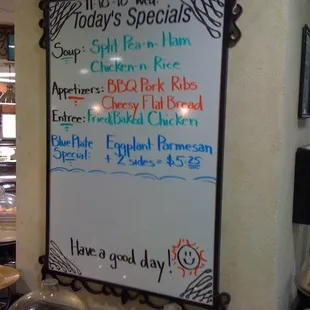 11-10-10 Wed.
Today's Specials
Soup: Split Pea-n-Ham
Chicken-n-Rice
Appetizers: BBQ Pork Ribs
Cheesy Flat Bread
Entree: Fried/Baked Chicken
Blue Plate Eggplant Parmesan
Special: + 2 sides = $5.25
Have a good day!